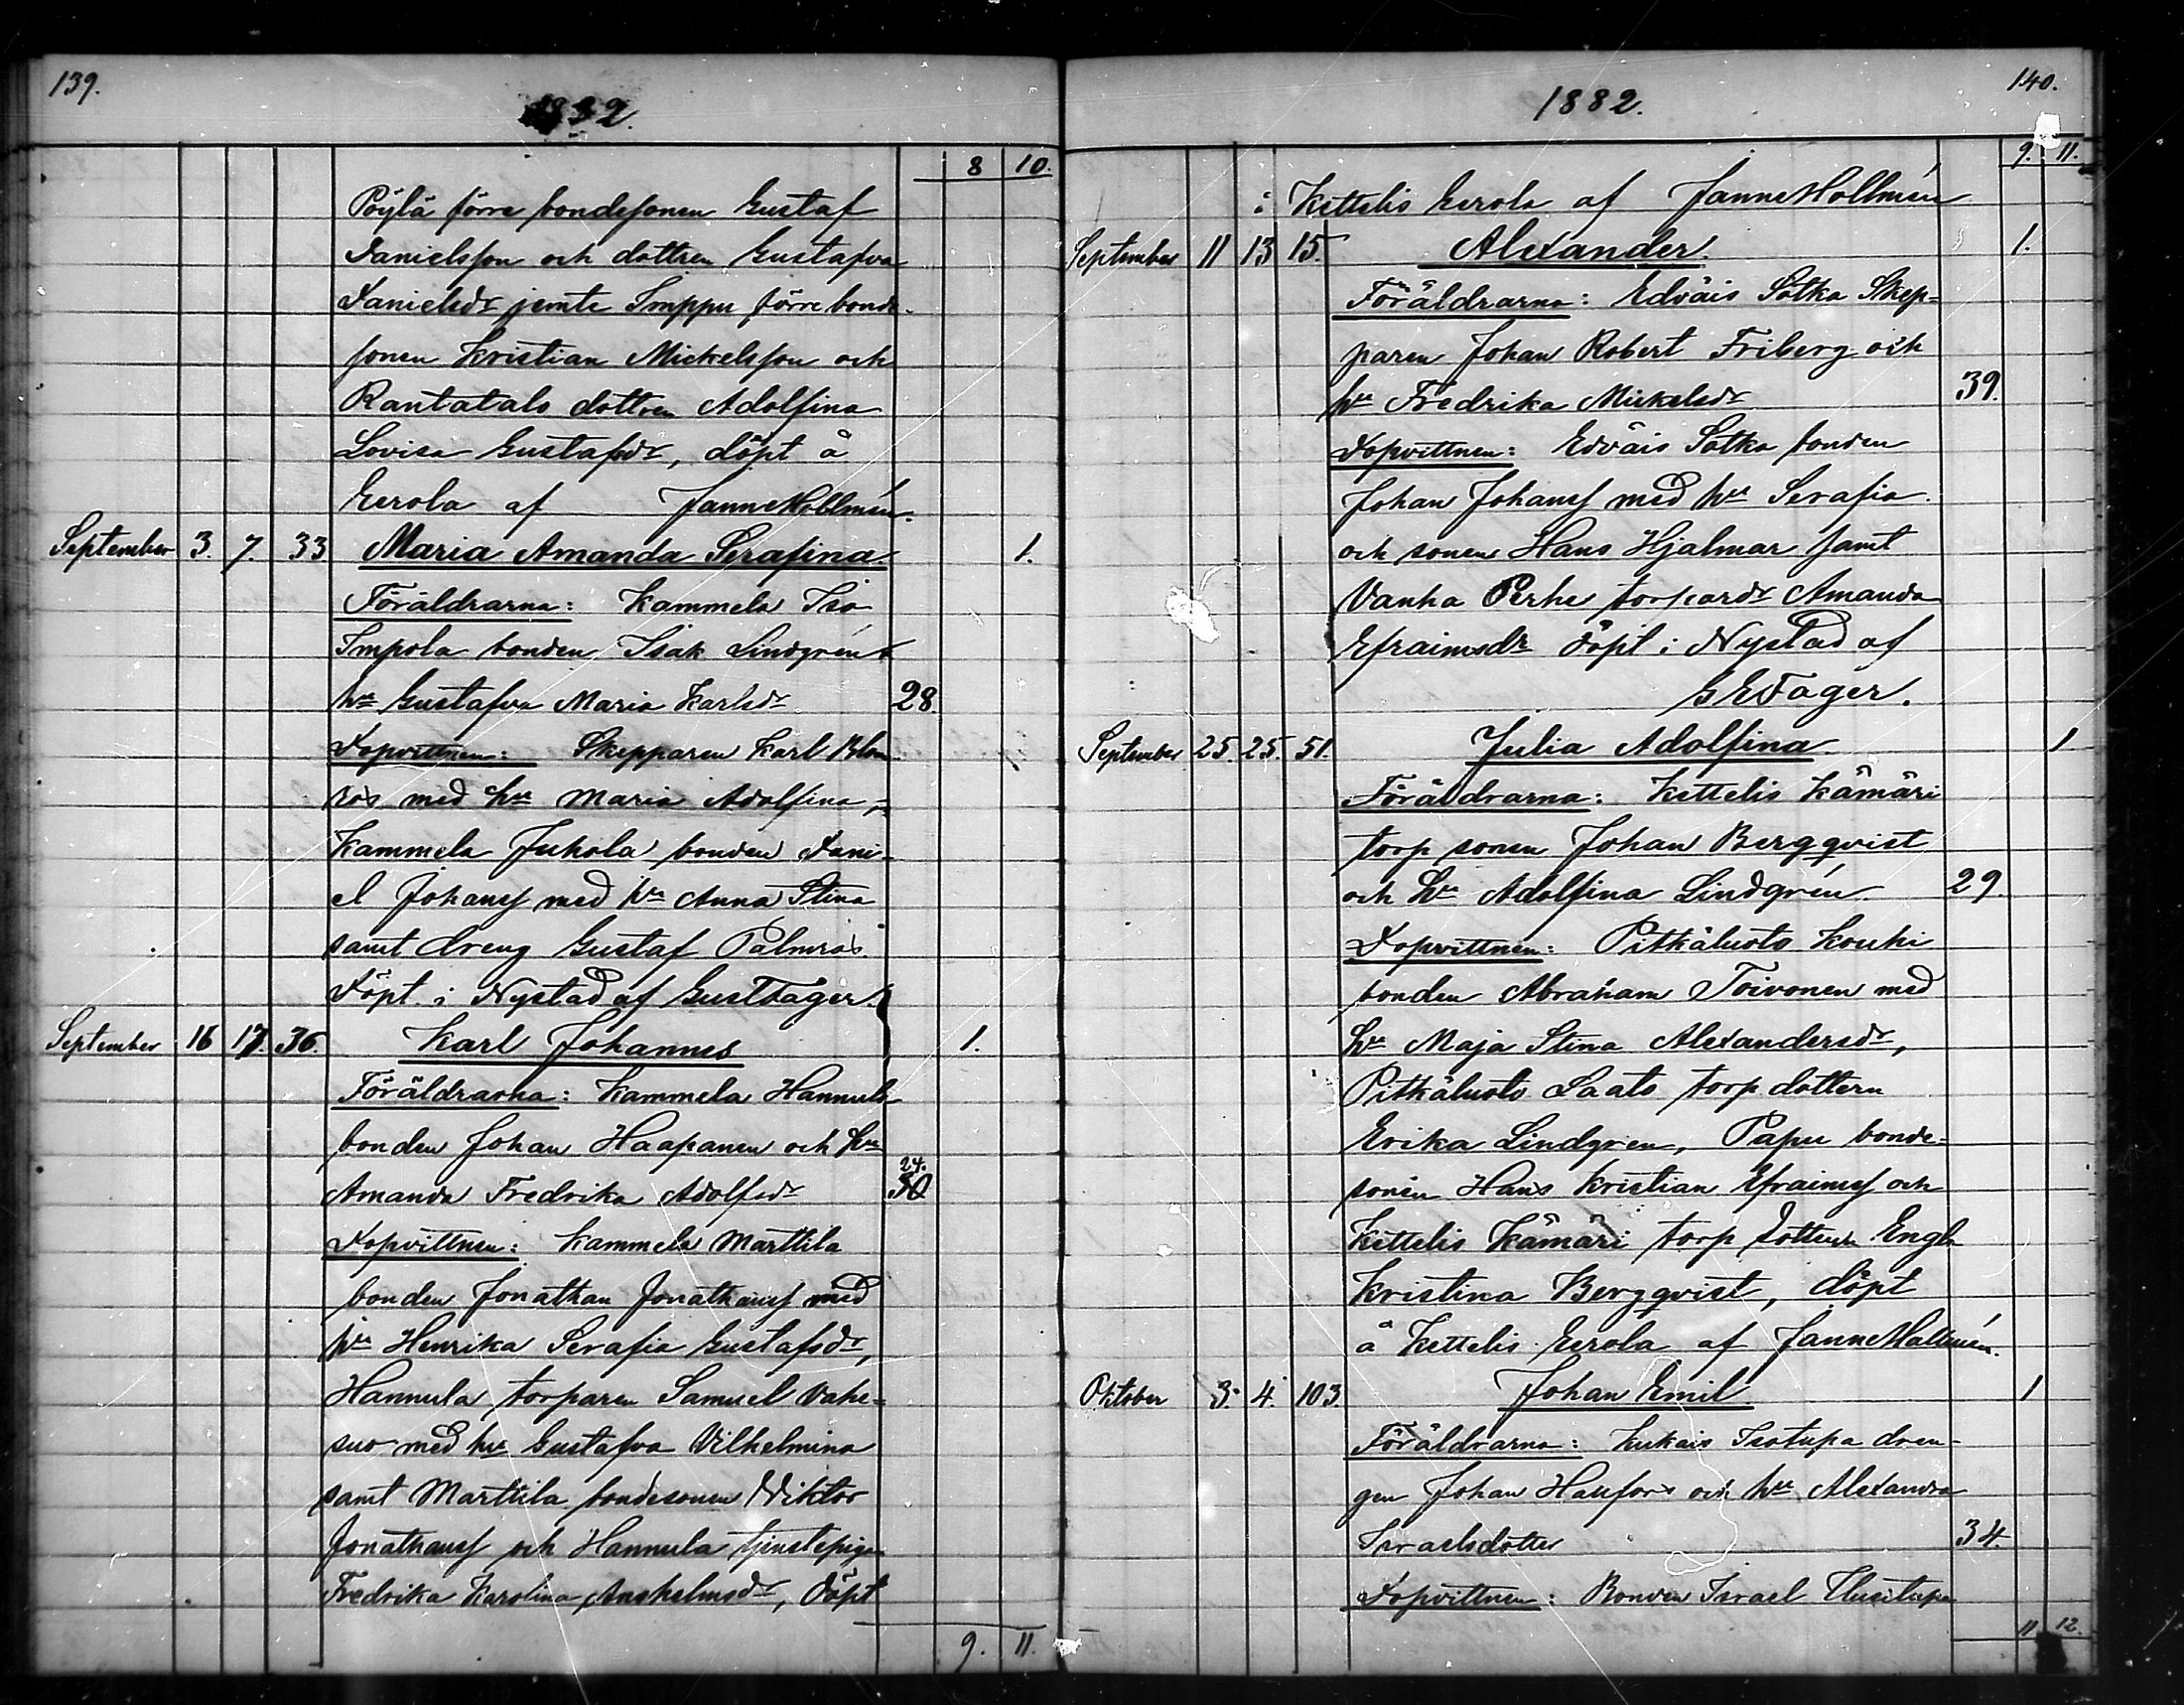 139.
1882.
8 10.
Pöylä förre bondesonen Gustaf
Danielsson och dottren Gustafva
Danielsdr jemte Simppu förre bonde-
sonen Kristian Mickelsson och
Rantatalo dottren Adolfina
Lovisa Gustafsdr, döpt å
Eerola af Janne Hollmén.
September 3. 7. 33 Maria Amanda Serafina. 1.
Föräldrarna: Kammela Iso
Impola bonden Isak Lindgrén o
hu Gustafva Maria Karlsdr 28.
Dopvittnen: Skepparen Karl Blom-
ros med hu Maria Adolfina,
Kammela Juhola bonden Dani-
el Johanss med hu Anna Stina
samt dreng Gustaf Palmros.
Döpt i Nystad af Gust Fager.
September 16 17. 36. Karl Johannes 1.
Föräldrarna: Kammela Hannula
bonden Johan Haapanen och hu
24.
Amanda Fredrika Adolfsdr 30
Dopvittnen: Kammela Marttila
bonden Jonathan Jonathanss med
hu Henrika Serafia Gustafsdr,
Hannula torparen Samuel Vahe-
suo med hu Gustafva Vilhelmina
samt Marttila bondesonen Wiktor
Jonathanss och Hannula tjenstepigan
Fredrika Karolina Anshelmsdr, döpt
9. 11.
140.
1882.
9. 11.
i Kettelis Eerola af Janne Hollmén
September 11 13 15. Alexander. 1.
Föräldrarna: Edväis Sotka Skep-
paren Johan Robert Friberg och
hu Fredrika Mickelsdr 39.
Dopvittnen: Edväis Sotka bonden
Johan Johanss med hu Serafia
och sonen Hans Hjalmar samt
Vanha Perhe torpardr Amanda
Efraimsdr döpt i Nystad af
G E Fager.
September 25. 25. 51. Julia Adolfina 1
Föräldrarna: Kettelis Kämäri
torp sonen Johan Bergqvist
och hu Adolfina Lindgrén. 29.
Dopvittnen: Pitkäluoto Kouhi
bonden Abraham Toivonen med
hu Maja Stina Alexandersdr,
Pitkäluoto Laato torp dottern
Erika Lindgren, Papu bonde-
sonen Hans Kristian Efraimss och
Kettelis Kämäri torp dottren Engla
Kristina Bergqvist, döpt
å Kettelis Eerola af Janne Hollmén.
Oktober 3. 4. 103 Johan Emil. 1
Föräldrarna: Isotupa dren-
gen Johan och hu Alexandra
Israelsdotter 34.
Dopvittnen: Bonden Israel Uusitupa
11 12.